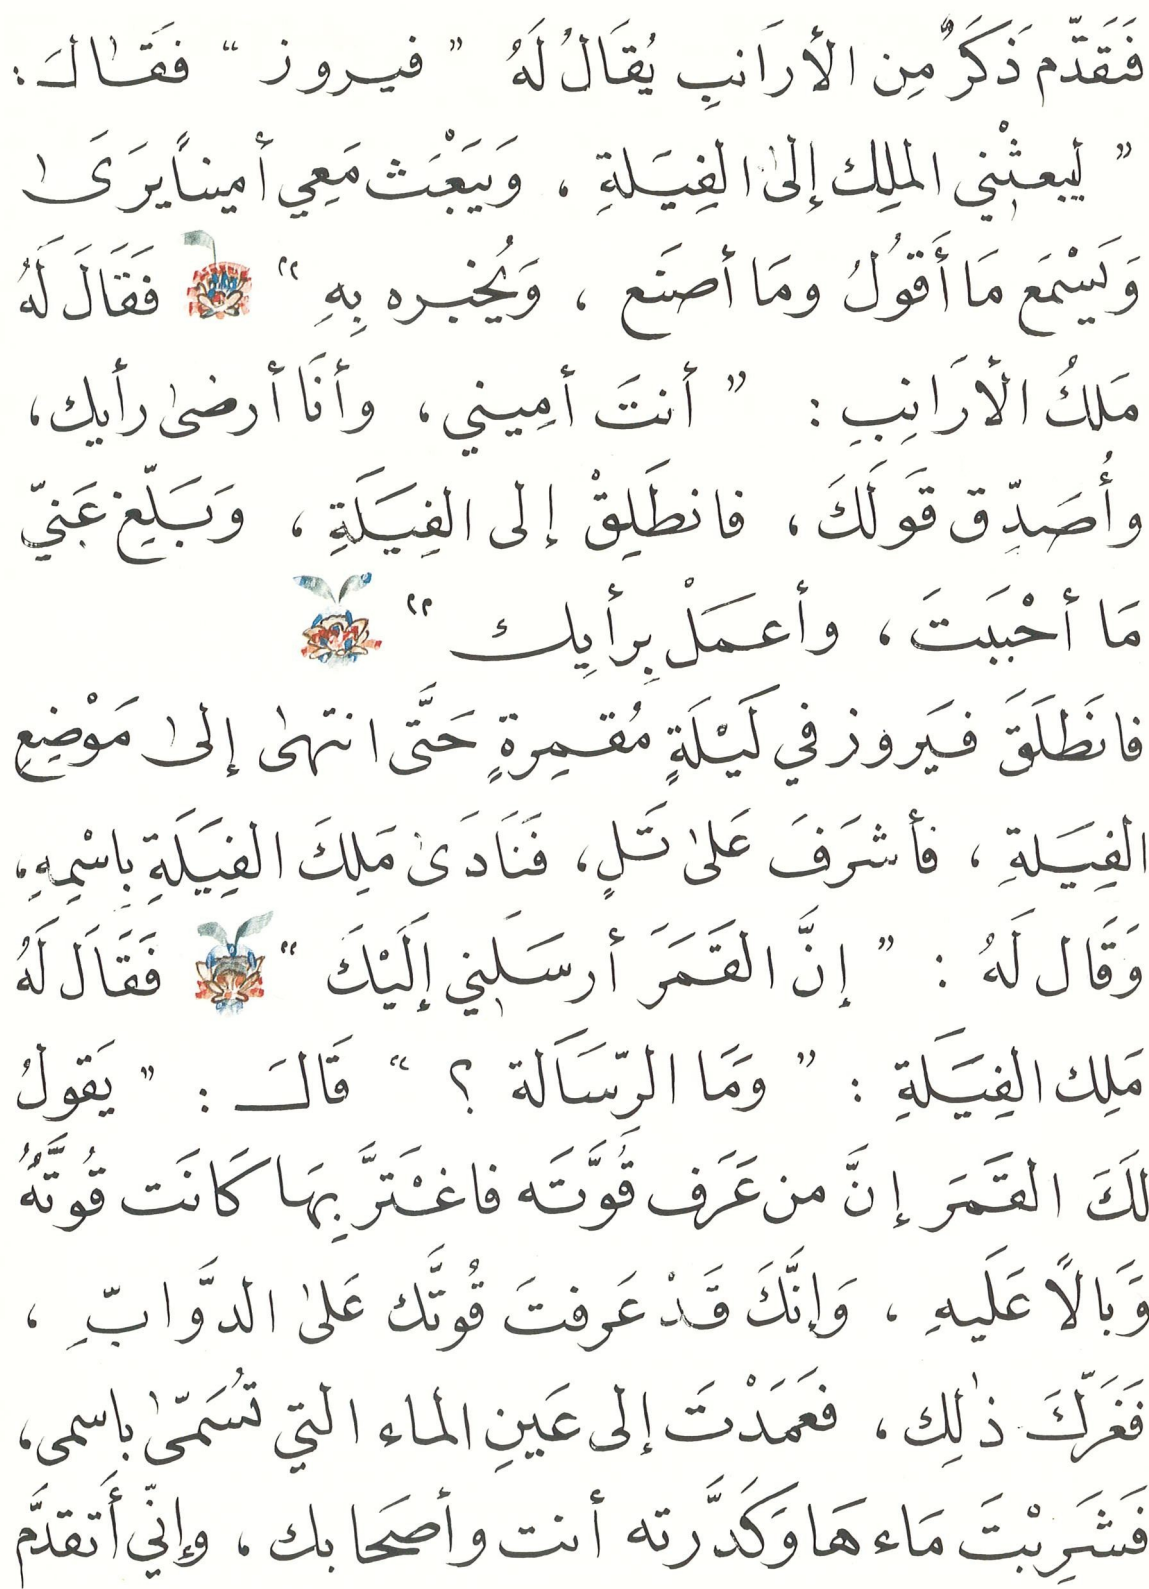 فَتَقَدّم ذَكَرٌ مِن الأرَانبِ يُقَالُ لَهُ " فيروز " فَقَالَ :
" ليبعثْني الملِك إلىٰ الفِيَلةِ ، وَيَبْعَث مَعِي أميناً يَرَىٰ
وَيَسْمَع مَا أَقوُلُ ومَا أصنَع ، وَيُخبره بِهِ " فَقَالَ لَهُ
مَلكُ الأرَانِبِ : " أنتَ أمِيني ، وأنَا أرضىٰ رأيك ،
وأُصَدِّق قَولَكَ ، فانطَلِقْ إلى الفِيَلَةِ ، وَبَلِّغ عَنيّ
مَا أحْبَبتَ ، وأعمَلْ بِرأيِك "
فانَطَلَقَ فَيروز في لَيْلَةٍ مُقمِرةٍ حَتَّى انتهىٰ إلىٰ مَوْضِعِ
الفِيَلةِ ، فأشرَفَ عَلىٰ تَلٍ ، فَنَادَىٰ مَلِكَ الفِيَلَةِ بِاسْمِهِ ،
وَقَال لَهُ : " إنَّ القَمَرَ أرسَلنِي إلَيْكَ " فَقَالَ لَهُ
مَلِك الفِيَلةِ : " وَمَا الرِّسَالة ؟ " قَالَ : " يَقولُ
لَكَ القَمَرَ إنَّ من عَرَف قُوَّتَه فاغْتَرَّ بِهَا كَانَت قُوتَّهُ
وَبَالًا عَلَيهِ ، وَإنَّكَ قَدْ عَرفتَ قُوتَّك عَلىٰ الدَّوابِّ ،
فَغَرّكَ ذٰلِك ، فَعَمَدْتَ إلى عَينِ الماء التي تُسَمّىٰ باسمى ،
فَشَرِبْتَ مَاءهَا وَكَدَّرته أنت وأصحَابك ، وإنّي أَتقدَّم